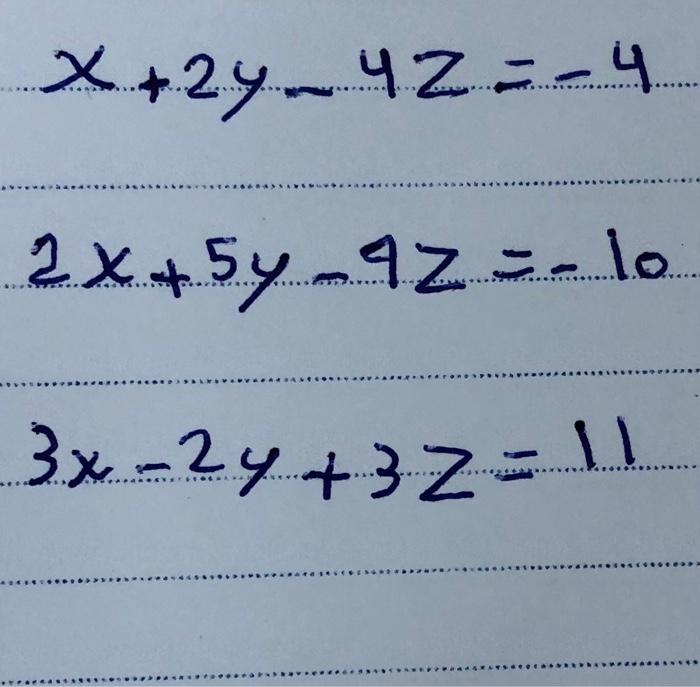 x + 2y - 4z = -4
2x + 5y - 9z = -10
3x - 2y + 3z = 11